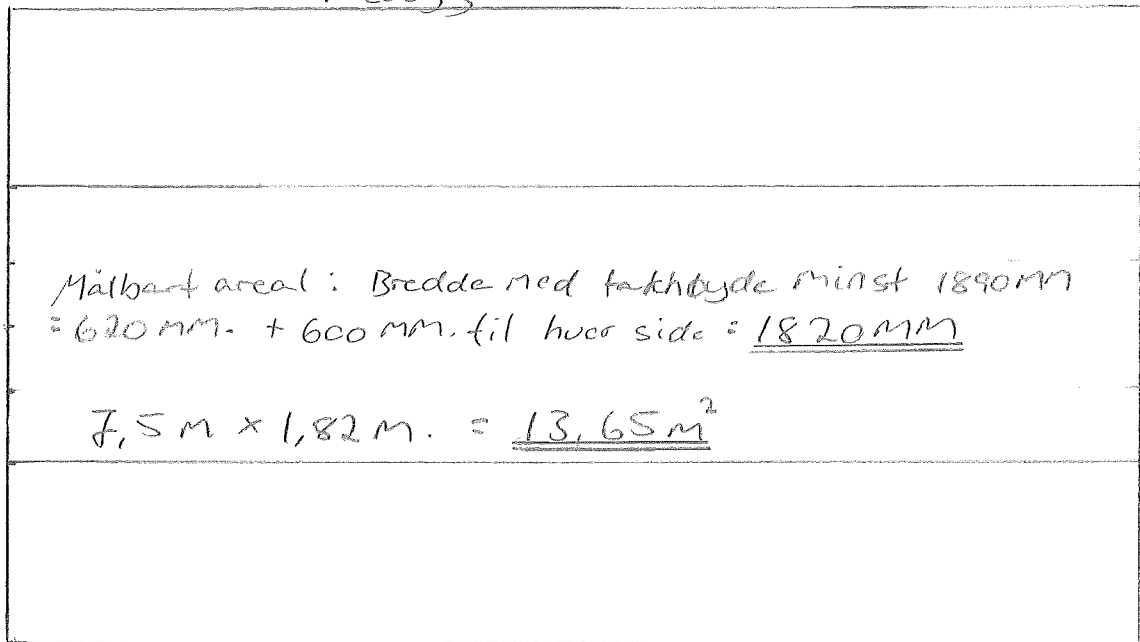 Målbart areal : Bredde med takhøyde minst 1890 MM
= 620 MM. + 600 MM. til hver side = 1820 MM
7,5 M x 1,82 M. = 13,65 M²